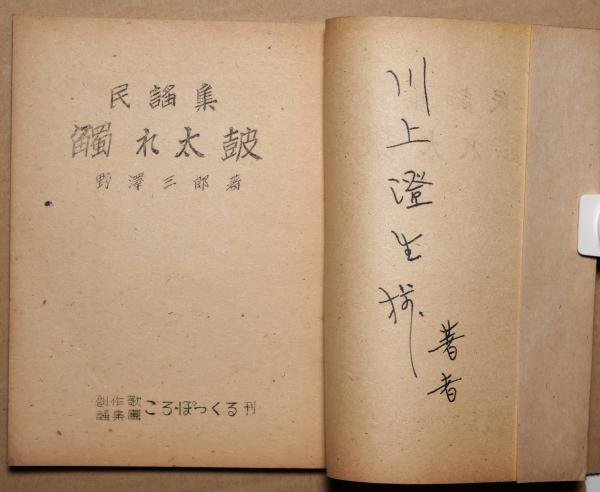 民謡集
觸れ太皷
野澤三郎著
創作歌
謡集團
ころ・ぽっくる刊
川上澄生様
著者